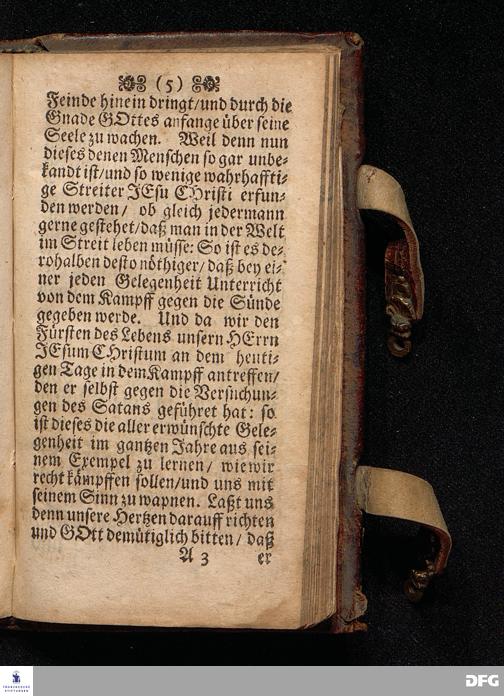 (5)
Feinde hinein dringt/und durch die
Gnade GOttes anfange über seine
Seele zu wachen. Weil denn nun
dieses denen Menschen so gar unbe-
kandt ist/und so wenige wahrhaffti-
ge Streiter JEsu CHristi erfun-
den werden/ ob gleich jedermann
gerne gestehet/daß man in der Welt
im Streit leben müsse: So ist es de-
rohalben desto nöthiger/daß bey ei-
ner jeden Gelegenheit Unterricht
von dem Kampff gegen die Sünde
gegeben werde. Und da wir den
Fürsten des Lebens unsern HErrn
JEsum CHristum an dem heuti-
gen Tage in dem Kampff antreffen/
den er selbst gegen die Versuchun-
gen des Satans geführet hat: so
ist dieses die aller erwünschte Gele-
genheit im gantzen Jahre aus sei-
nem Exempel zu lernen/ wie wir
recht kämpffen sollen/und uns mit
seinem Sinn zu wapnen. Laßt uns
denn unsere Hertzen darauff richten
und GOtt demütiglich bitten/ daß
A 3 er
FRANCKESCHE
STIFTUNGEN
DFG